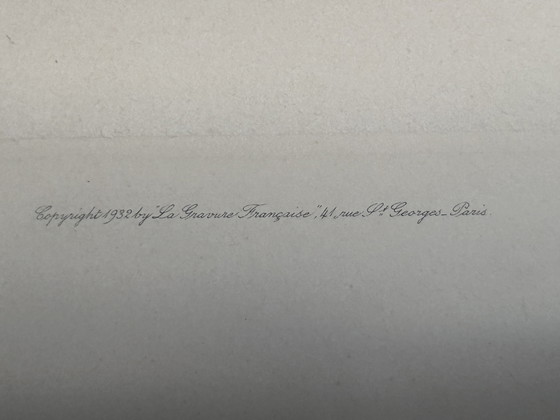 Copyright 1932 by "La Gravure Française", 41, rue St Georges_Paris.